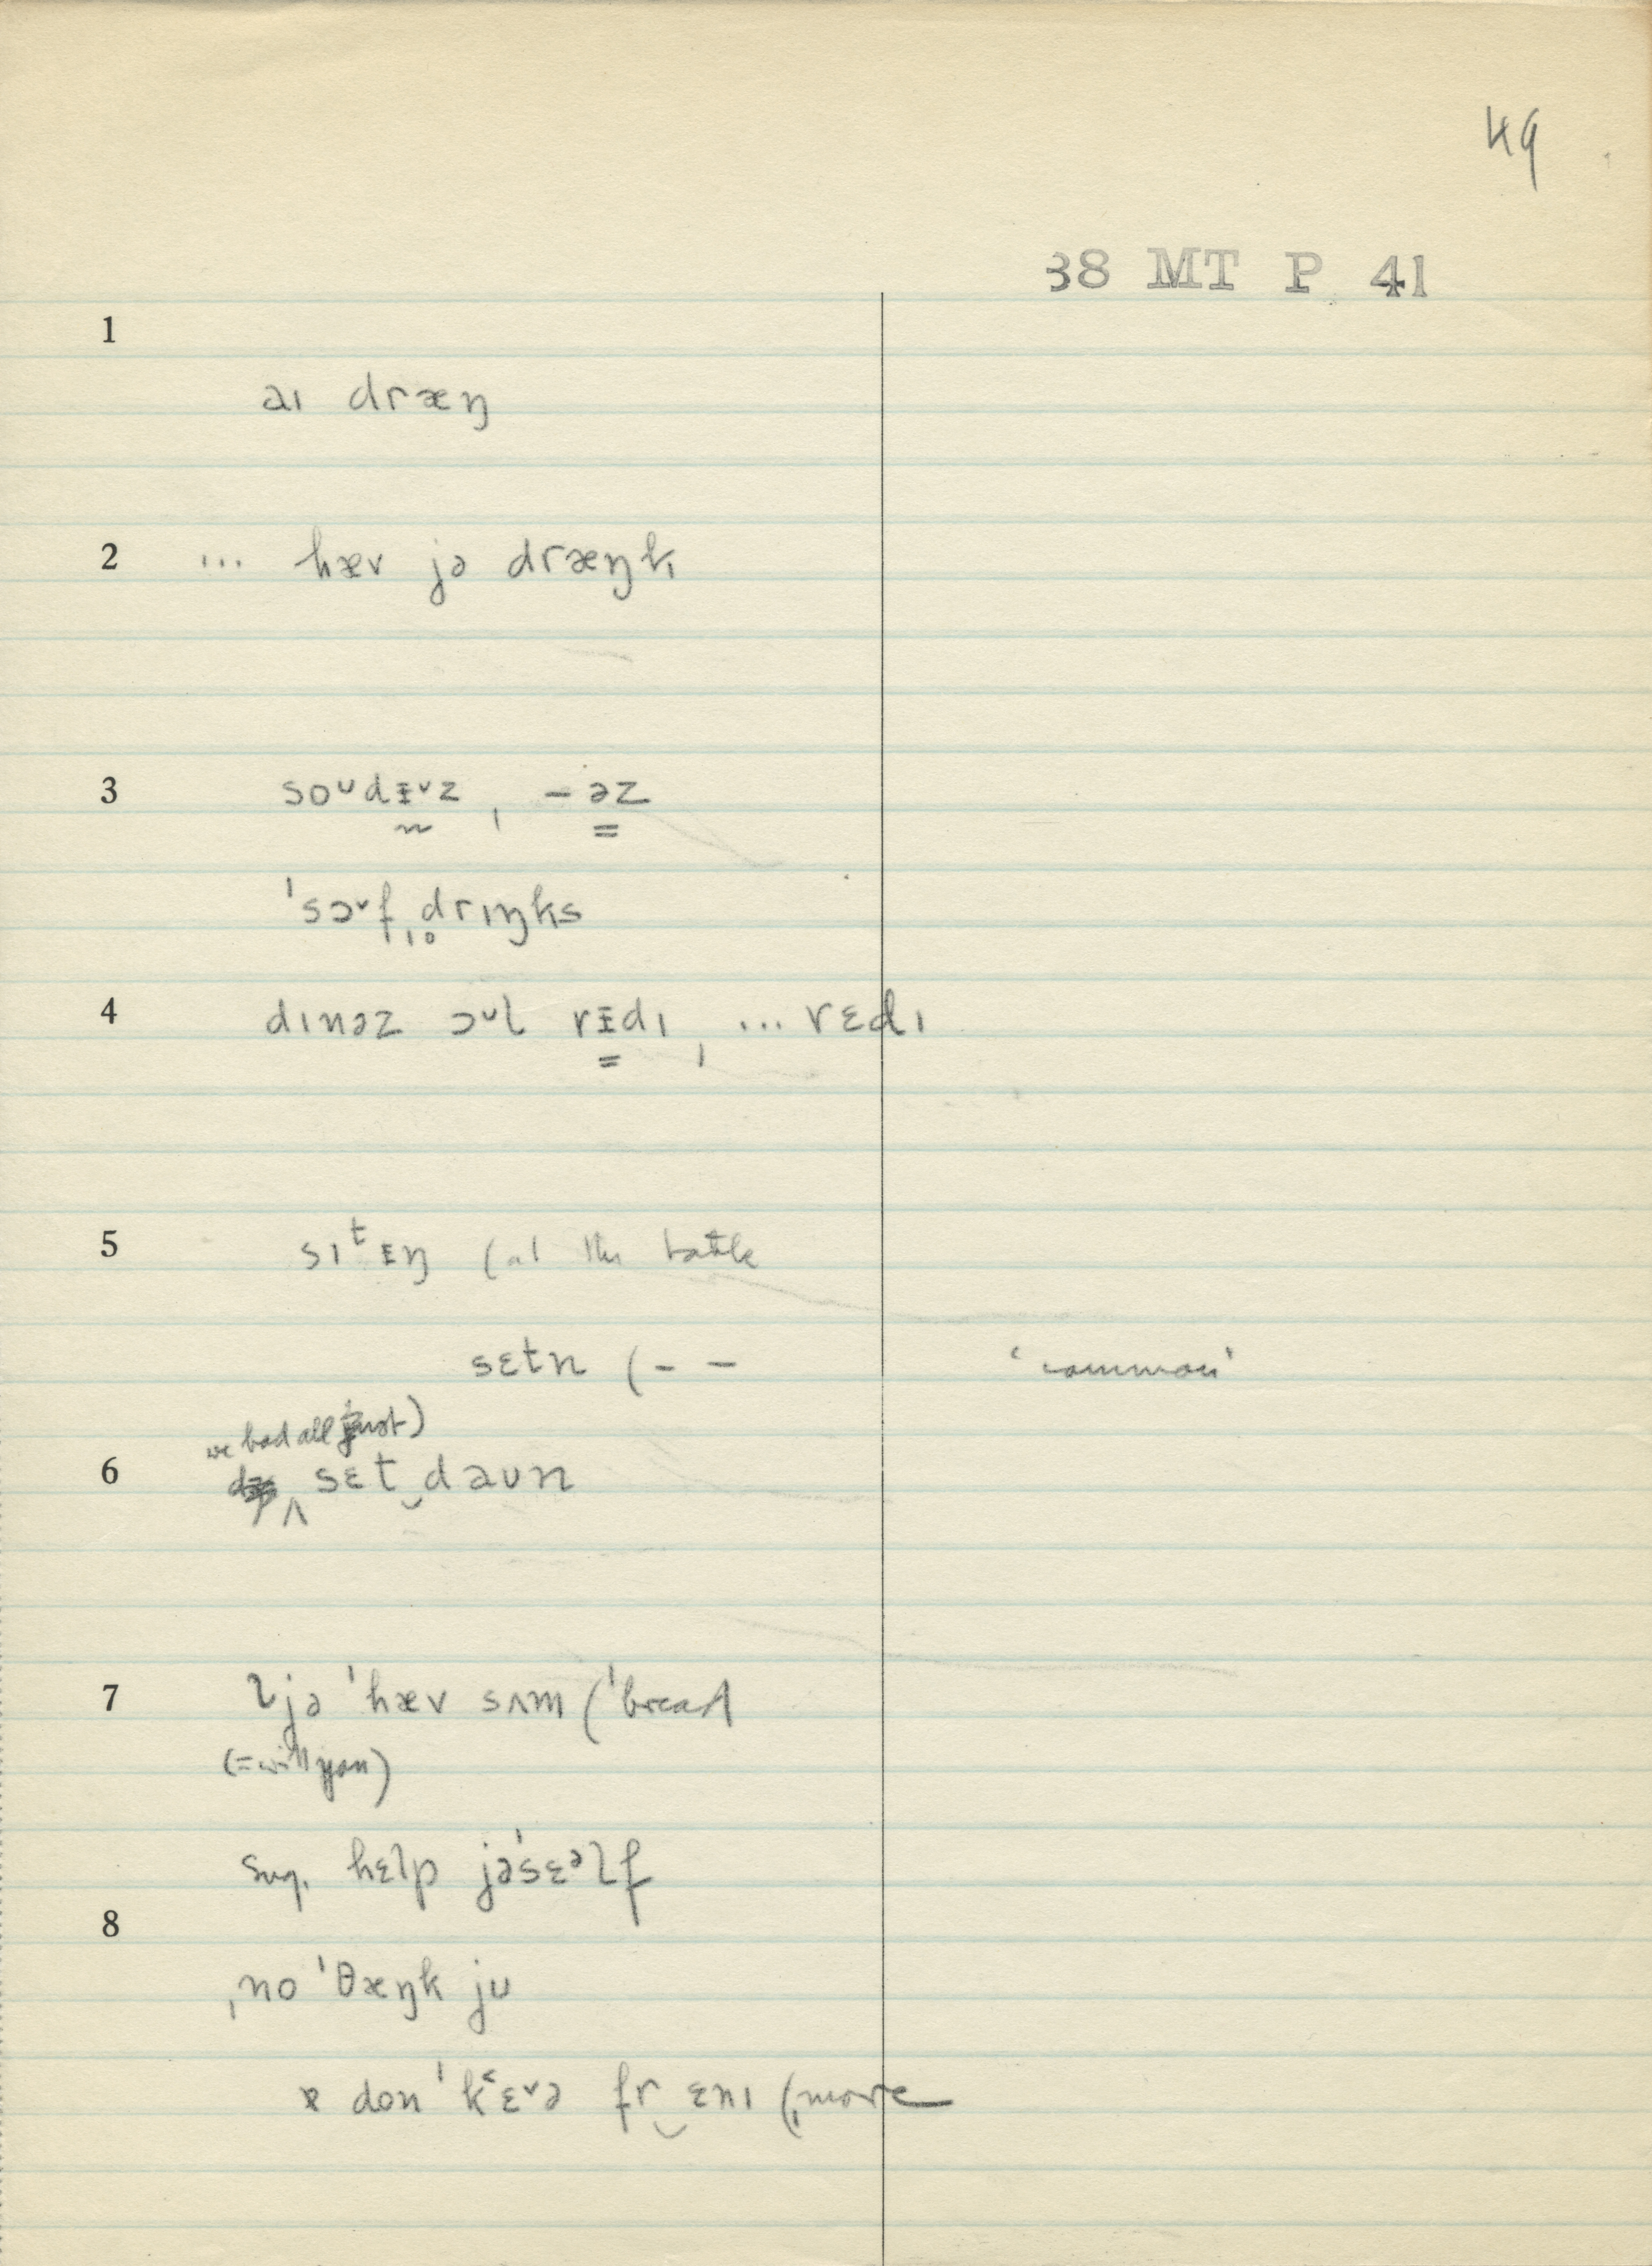 49
38 MT P 41
1
aɪ dræŋ
2 ... hæv jə dræŋk
3 soᴜdᵻᵛz, -əz
ˈsɔᵛf ̩drɪŋks
4 dɪnəz ɔᵛl rᵻdɪ, ... rɛdɪ
5 sɪᵗᵻŋ (at the table
sɛtn (– – 'common'
we had all just)
6 ʌ sɛt‿daʊn
7 ljə ˈhæv sʌm (ˈbread
(=will you)
sug. hɛlp jəˈsɛᵊlf
8
ˌno ˈθæŋk jʊ
ɐ don ˈk˂ɛᵛə fr‿ɛnɪ (ˌmore